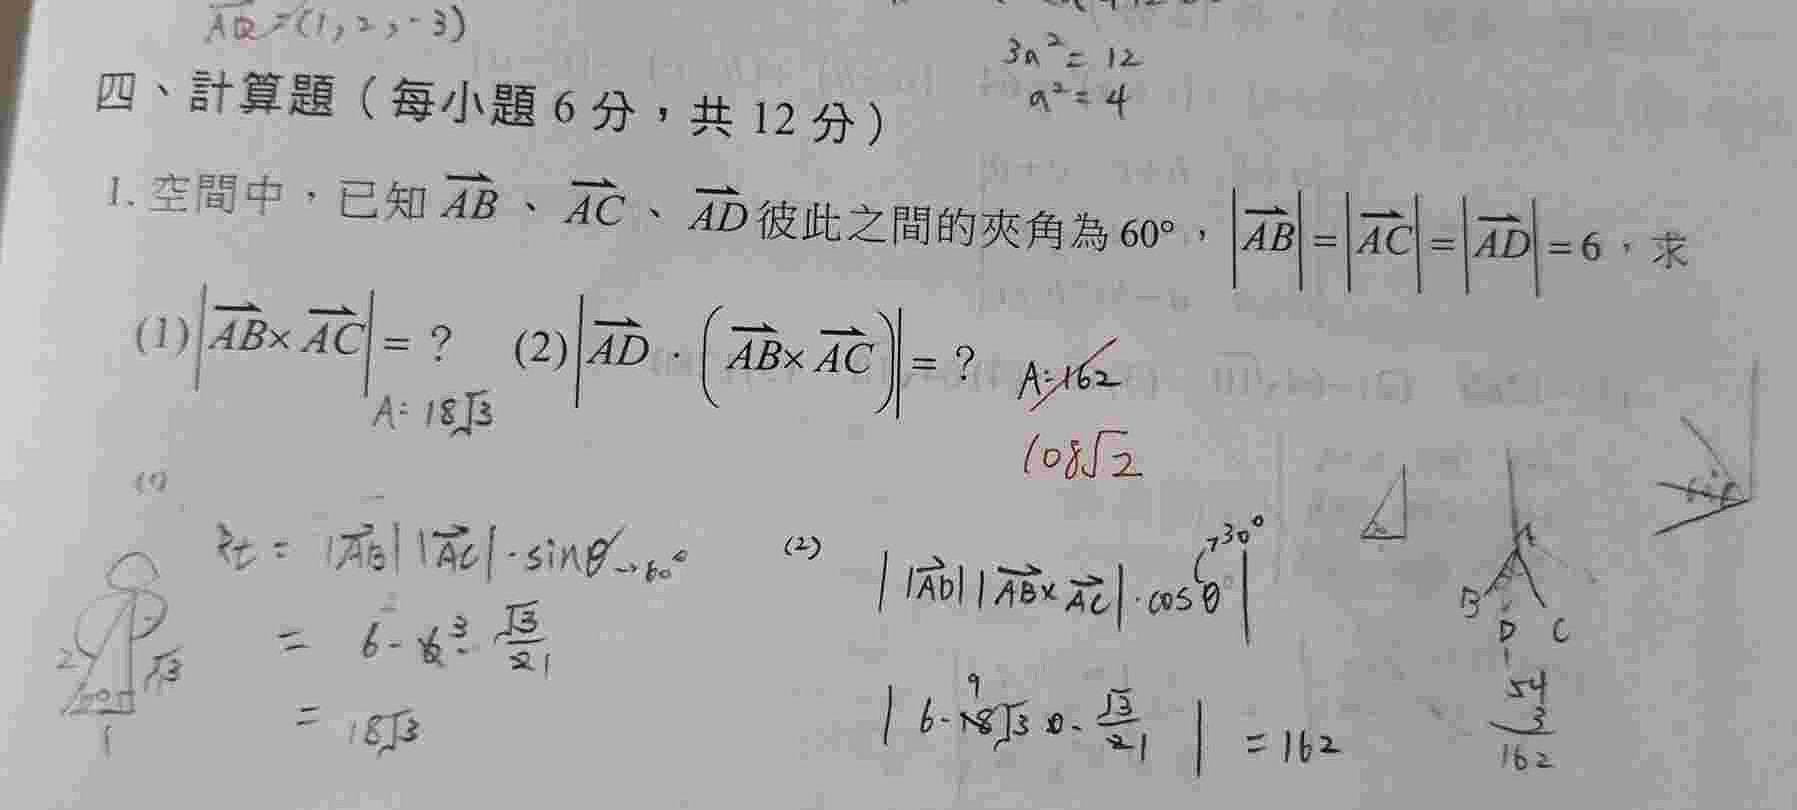 AQ=(1,2,-3)
3a²=12
a²=4
四、計算題（每小題 6 分，共 12 分）
1. 空間中，已知 AB、AC、AD 彼此之間的夾角為 60°，|AB|=|AC|=|AD|=6，求
(1)|AB×AC|=？ (2)|AD·(AB×AC)|=？ A:162
A:18√3
108√2
(1)
= |AB||AC|·sinθ→60°
= 6·6³·√3/2 1
= 18√3
2 √3
60°
1
(2)
||AD||AB×AC|·cosθ| →30°
|6·18 9√3·√3/2 1| = 162
A
B D C
54
3
162